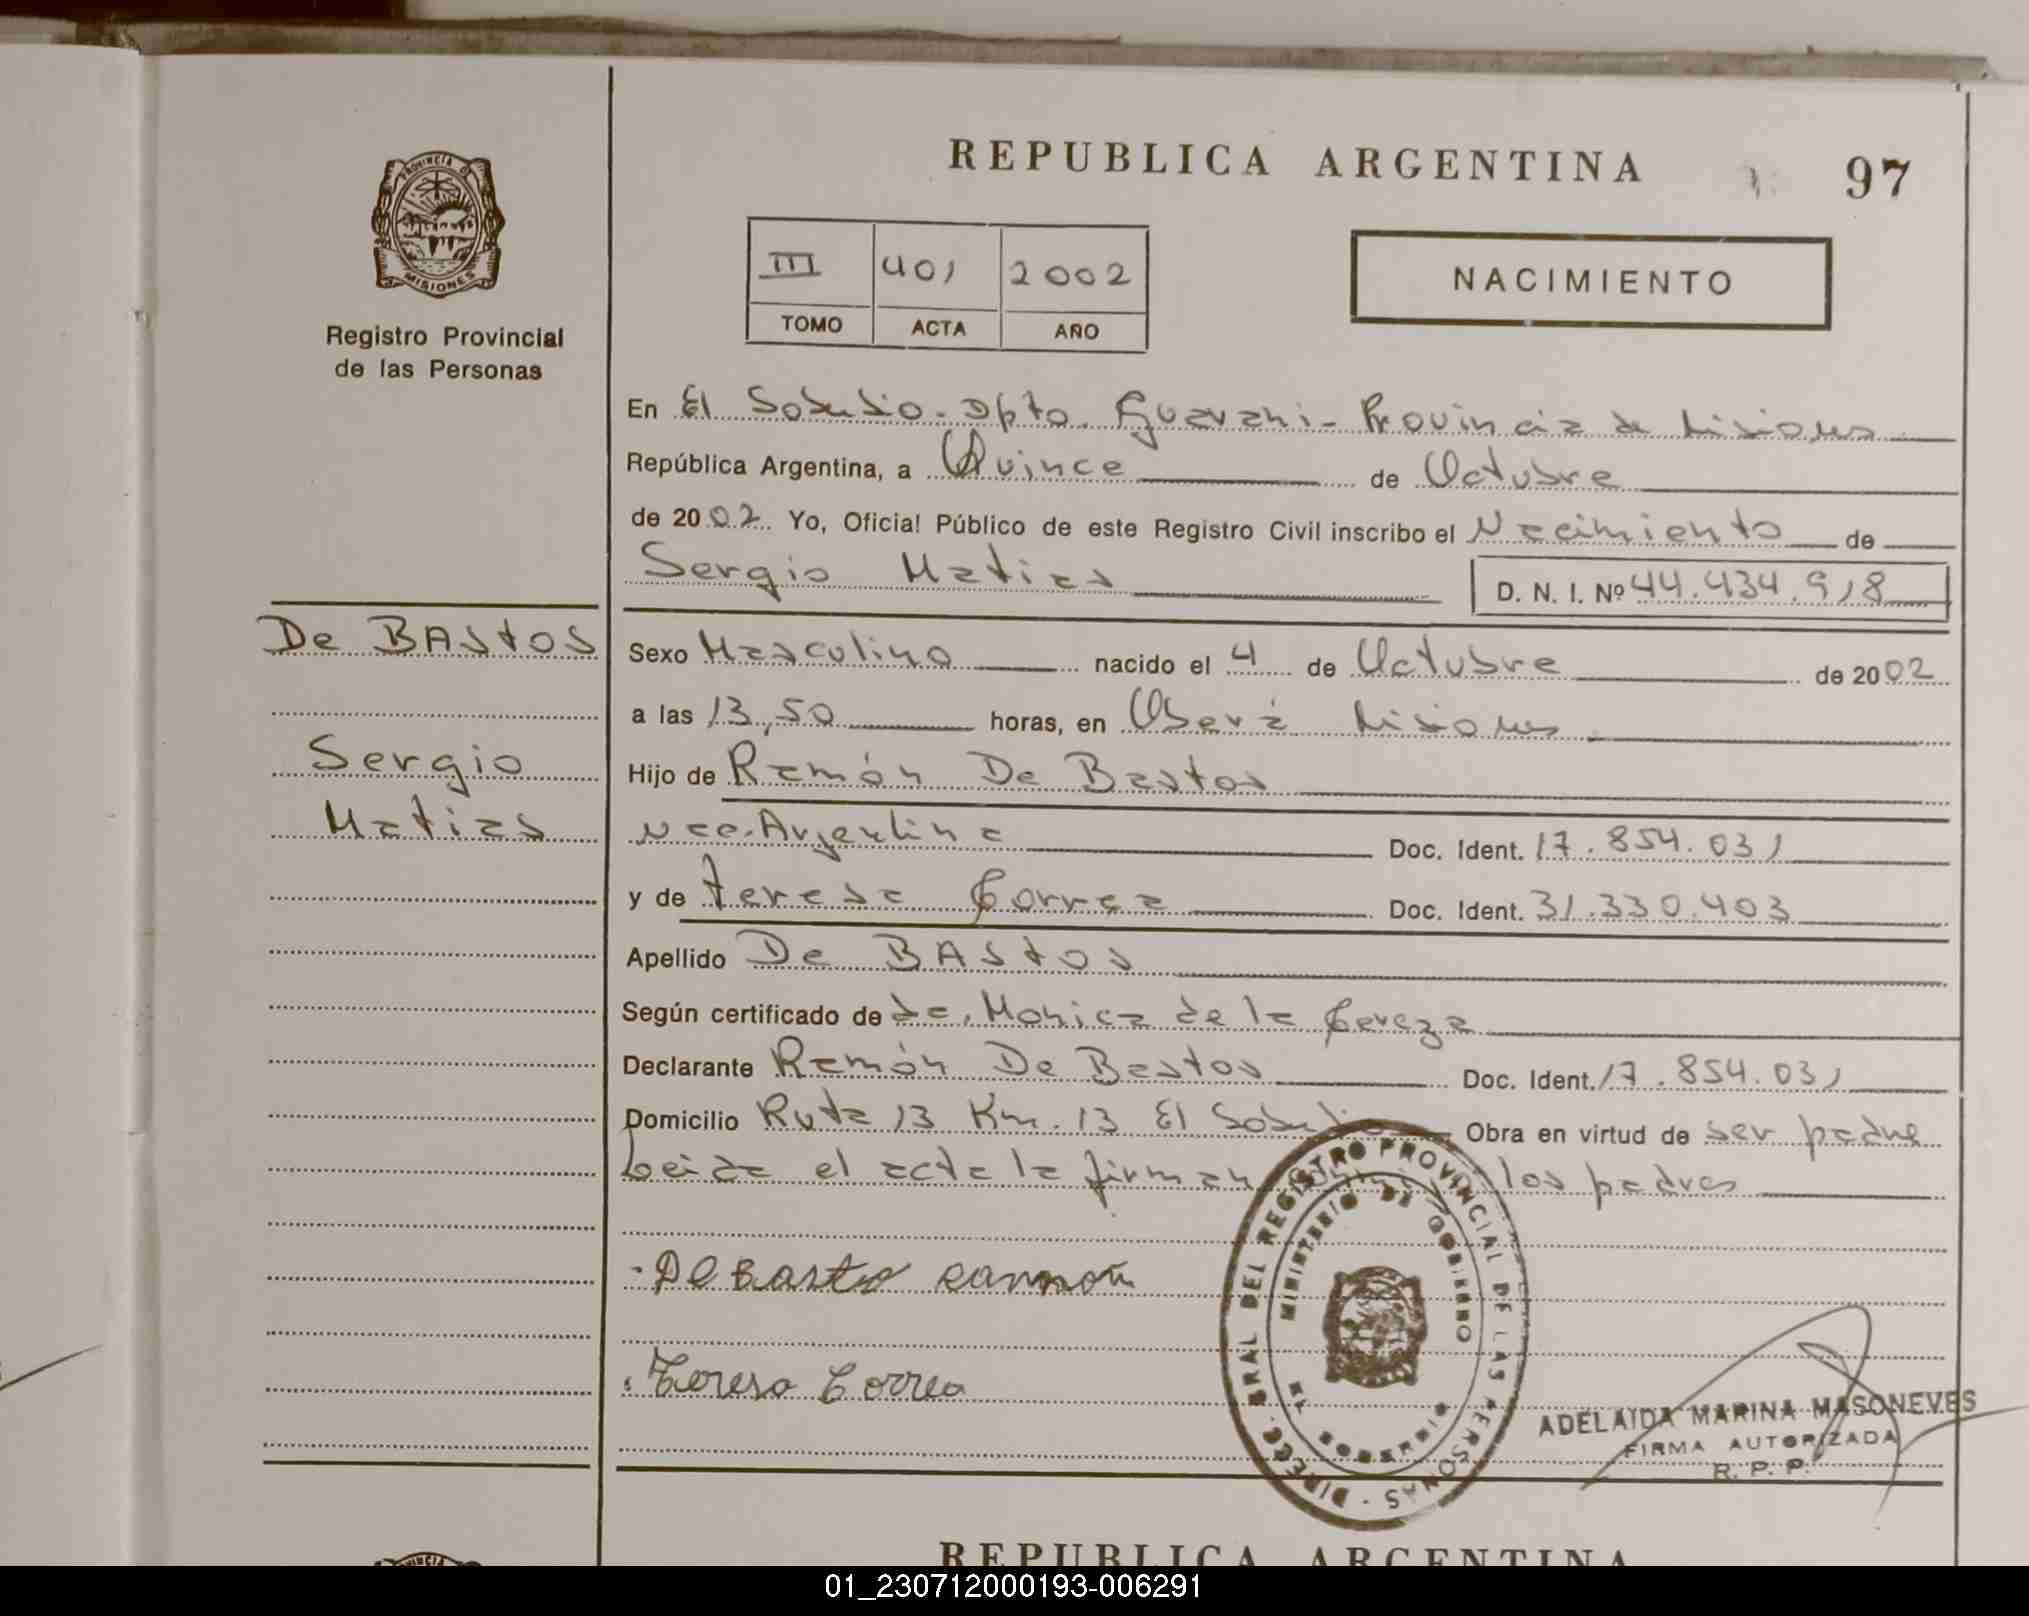 REPUBLICA ARGENTINA
97
PROVINCIA D MISIONES
Registro Provincial
de las Personas
III 401 2002
TOMO ACTA AÑO
NACIMIENTO
En El Soberbio - Dpto. Guarani - Provincia de Misiones
República Argentina, a Quince de Octubre
de 2002. Yo, Oficial Público de este Registro Civil inscribo el Nacimiento de
Sergio Matias
D. N. I. Nº 44.434.918
De BAstos
Sergio
Matias
Sexo Masculino nacido el 4 de Octubre de 2002
a las 13,50 horas, en Oberá Misiones
Hijo de Ramón De Bastos
Nac. Argentina Doc. Ident. 17.854.031
y de Teresa Correa Doc. Ident. 31.330.403
Apellido De BAstos
Según certificado de da. Monica de la Cereza
Declarante Ramón De Bastos Doc. Ident. 17.854.031
Domicilio Ruta 13 Km. 13 El Soberbio Obra en virtud de ser padre
Leida el acta la firman los padres
De Basto Ramon
Teresa Correa
DIRECC. GRAL DEL REGISTRO PROVINCIAL DE LAS PERSONAS -
MINISTERIO DE GOBIERNO
MISIONES
ADELAIDA MARINA MASONEVES
FIRMA AUTORIZADA
R. P. P.
PROVINCIA
REPUBLICA ARGENTINA
01_230712000193-006291